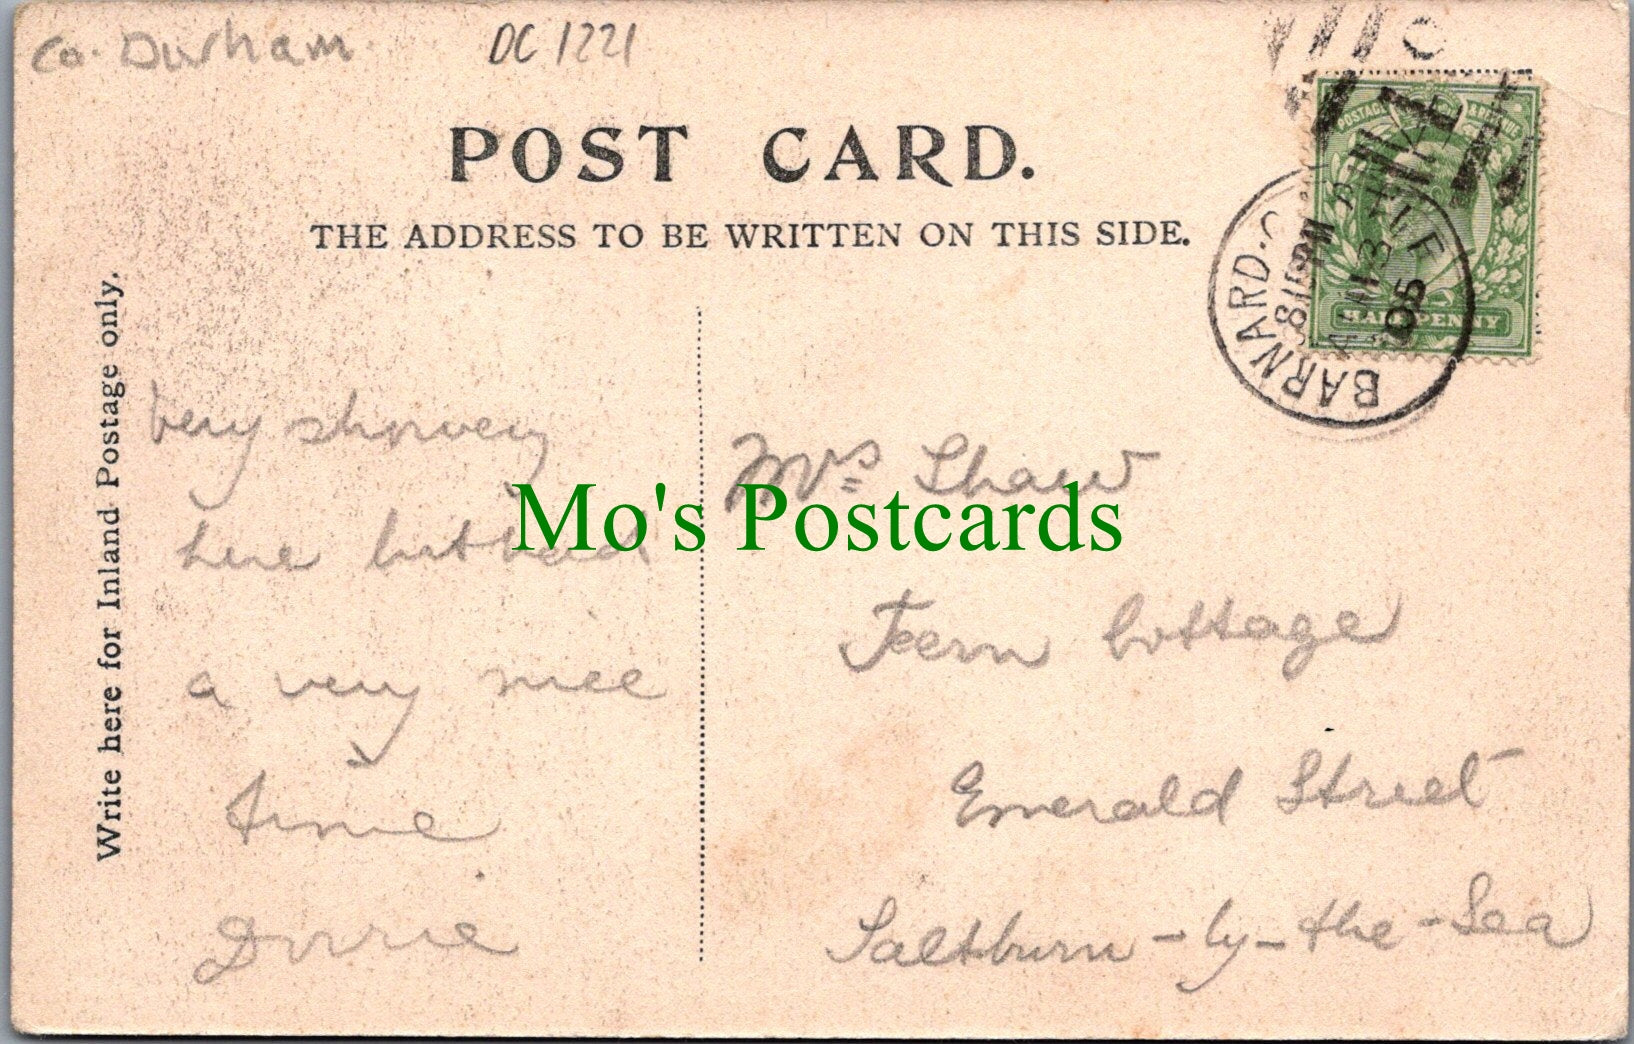 Co. Durham
DC 1221
POST CARD.
THE ADDRESS TO BE WRITTEN ON THIS SIDE.
Write here for Inland Postage only.
BARNARD.C TLE
8 15 PM
05
POSTAGE REVENUE
HALFPENNY
Very showery
here but had
a very nice
time
Dorrie
Mrs Shaw
Feern Cottage
Emerald Street
Saltburn-by-the-Sea
Mo's Postcards